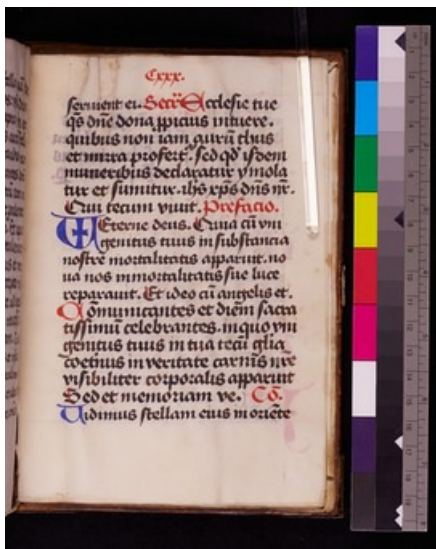 Cxxx.
seruient ei. Secr̄ Ecclesie tue
q̄s dn̄e dona ꝓpicius intuere.
quibus non iam aurū thus
et mirra profert᷑. sed qd̓ isdem
muneribus declaratur ymola
tur et sumitur. ih̄s xp̄s dn̄s nr̄.
Qui tecum viuit. Prefacio.
Eterne deus. Quia cū vni
genitus tuus in substancia
nostre mortalitatis apparuit. no
ua nos inmortalitatis sue luce
reparauit. Et ideo cū angelis et.
Cōmunicantes et diem sacra
tissimū celebrantes. in quo vni
genitus tuus in tua tecū gl̄ia
coetnus in veritate carnis nr̄e
visibiliter corporalis apparuit
Sed et memoriam ve. Cō.
Uidimus stellam eius in oriēte